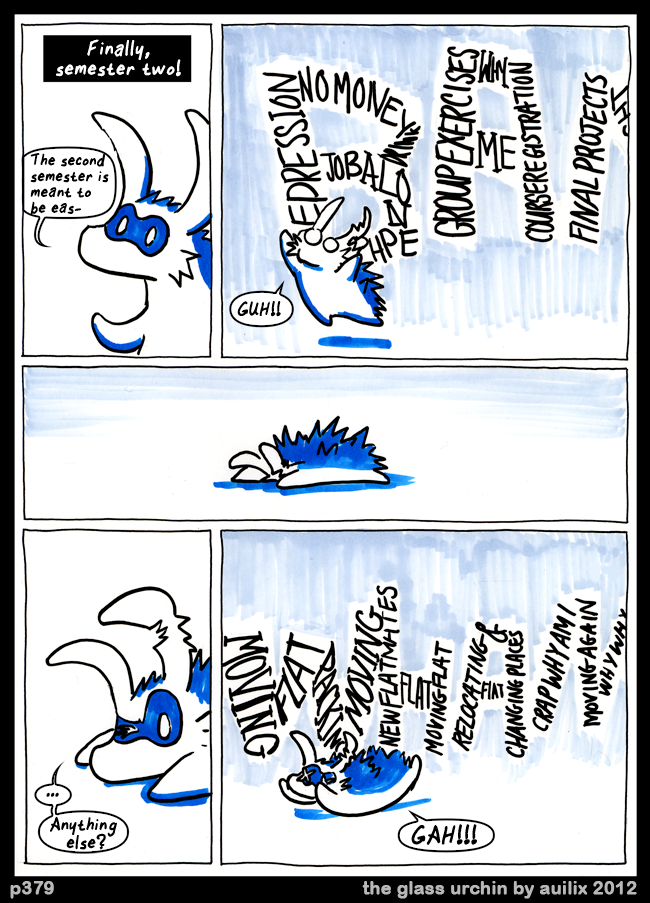 Finally,
semester two!
The second
semester is
meant to
be eas-
EPRESSION
NO MONEY
JOB
ALONE
HPE
GROUP EXERCISES
WHY
ME
COURSE REGISTRATION
FINAL PROJECTS
GUH!!
...
Anything
else?
MOVING
FLAT
MOVING
NEW FLATMATES
FLAT
MOVING FLAT
RELOCATING &
FLAT
CHANGING PLACES
CRAP WHY AM I
MOVING AGAIN
WHY WHY
GAH!!!
p379
the glass urchin by auilix 2012